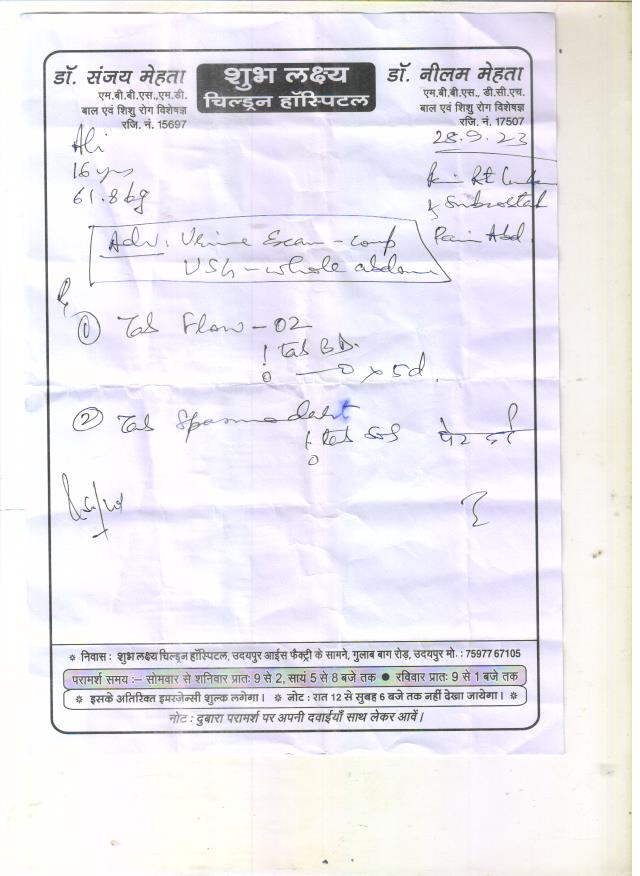 डॉ. संजय मेहता
एम.बी.बी.एस.,एम.डी.
बाल एवं शिशु रोग विशेषज्ञ
रजि. नं. 15697
शुभ लक्ष्य
चिल्ड्रन हॉस्पिटल
डॉ. नीलम मेहता
एम.बी.बी.एस., डी.सी.एच.
बाल एवं शिशु रोग विशेषज्ञ
रजि. नं. 17507
28.9.23
Ali
16 yrs
61.8 kg
Pain Rt
Subcostal
Pain Abd.
Adv: Urine Exam - comp
USG - whole abdomen
① Tab Flow-02
1 Tab BD.
x 5d.
② Tab
1 tab SOS पेट दर्द
❋ निवास : शुभ लक्ष्य चिल्ड्रन हॉस्पिटल, उदयपुर आईस फैक्ट्री के सामने, गुलाब बाग रोड़, उदयपुर मो. : 75977 67105
परामर्श समय :– सोमवार से शनिवार प्रातः 9 से 2, सायं 5 से 8 बजे तक ● रविवार प्रातः 9 से 1 बजे तक
❋ इसके अतिरिक्त इमरजेन्सी शुल्क लगेगा। ❋ नोट : रात 12 से सुबह 6 बजे तक नहीं देखा जायेगा। ❋
नोट : दुबारा परामर्श पर अपनी दवाईयाँ साथ लेकर आवें।